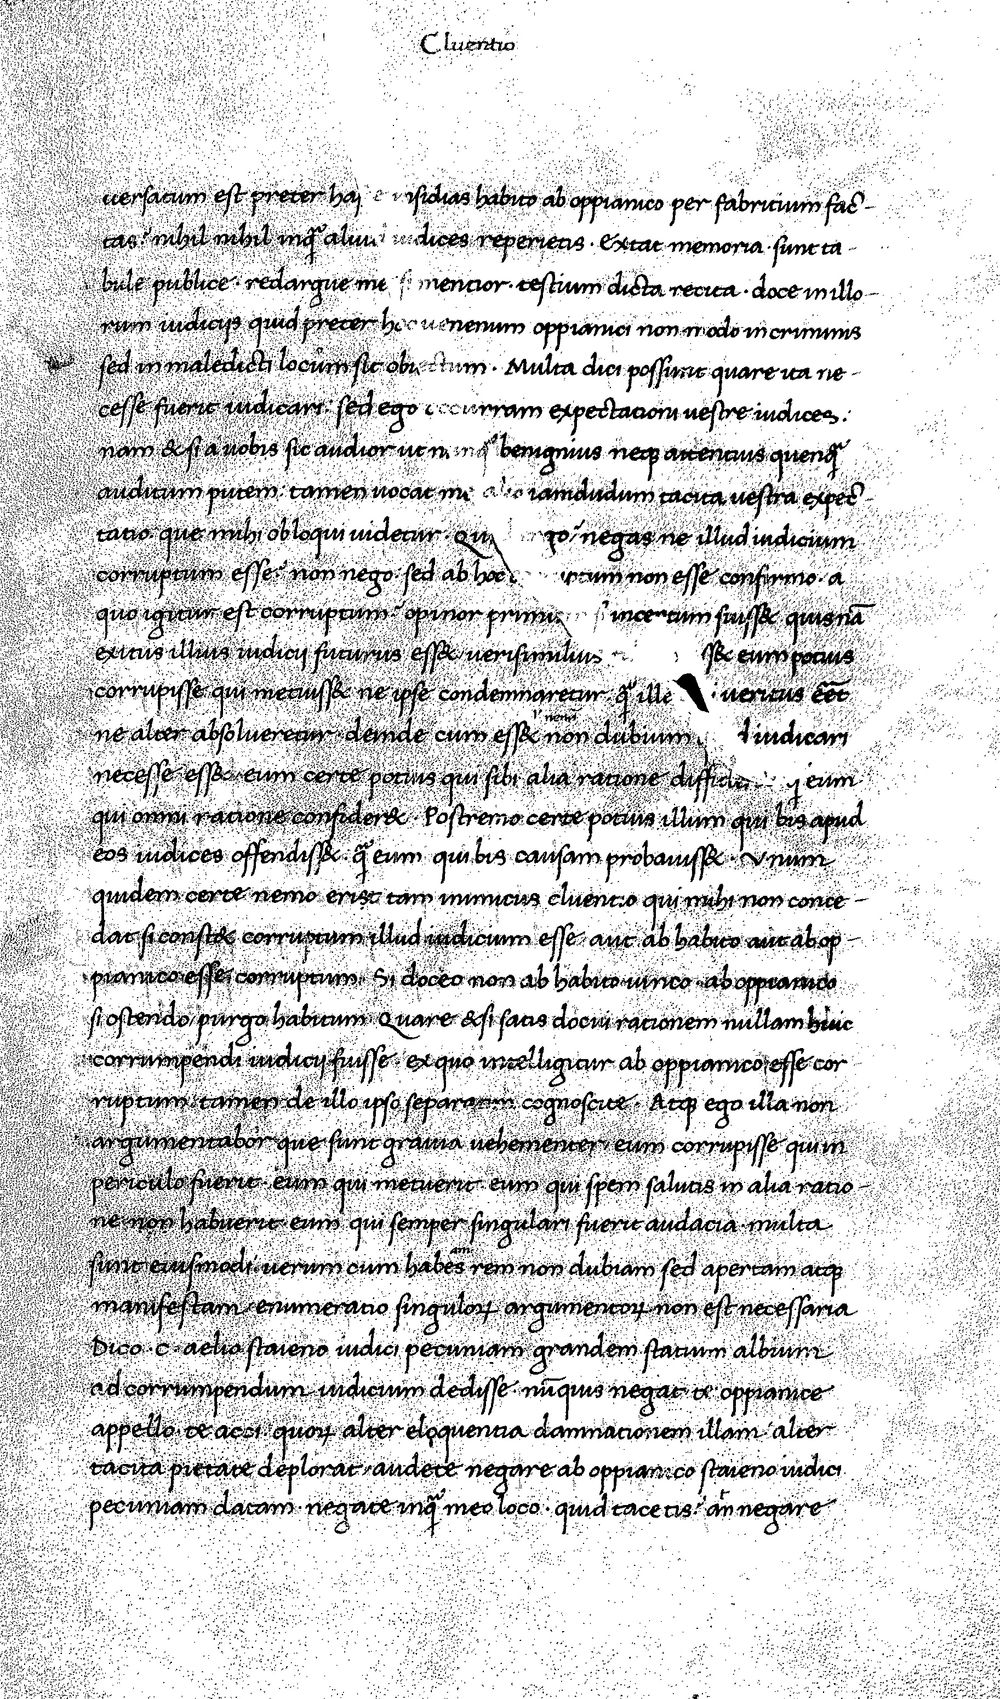 Cluentio
uersatum est preter has insidias habito ab oppianico per fabricium fac̄-
tas? nihil nihil inq̄ aliud iudices reperietis · Extat memoria · sunt ta-
bule publice · redargue me si mentior · testium dicta recita · doce in illo-
rum iudiciis quid preter hoc uenenum oppianici non modo in criminis
sed in maledicti locum sit obiectum · Multa dici possunt quare ita ne-
cesse fuerit iudicari · sed ego occurram expectationi uestre iudices ·
nam & si a uobis sic audior ut nunq̄ benignius neq; attentius quenq̄
auditum putem · tamen uocat me alio iamdudum tacita uestra expec̄-
tatio · que mihi obloqui uidetur · negas ne illud iudicium
corruptum esse? non nego · sed ab hoc non esse confirmo · a
quo igitur est corruptum? opinor incertum fuiss& quisnā
exitus illius iudicii futurus ess& uerisimilius ss& eum potius
corrupisse qui metuiss& ne ipse condemnaretur q̄ ille ueritus eēt
ne alter absolueretur · deinde cum ess& non nemini dubium iudicari
necesse ess& · eum certe potius qui sibi alia ratione eum
qui omni ratione confider& · Postremo certe potius illum qui bis apud
eos iudices offendiss& · q̄ eum qui bis causam probauiss& · Unum
quidem certe nemo erit tam inimicus cluentio qui mihi non conce-
dat si const& corruptum illud iudicium esse aut ab habito aut ab op-
pianico esse corruptum · Si doceo non ab habito uinco · ab oppianico
si ostendo purgo habitum · Quare & si satis docui rationem nullam huic
corrumpendi iudicii fuisse · ex quo intelligitur ab oppianico esse cor
ruptum tamen de illo ipso separatim cognoscite · Atq; ego illa non
argumentabor que sunt grauia uehementer · eum corrupisse qui in
periculo fuerit · eum qui metuerit eum qui spem salutis in alia ratio-
ne non habuerit eum qui semper singulari fuerit audacia · multa
sunt eiusmodi · uerum cum habeam rem non dubiam sed apertam atq;
manifestam enumeratio singuloꝝ argumentoꝝ non est necessaria
Dico · C · aelio staieno iudici pecuniam grandem statium albium
ad corrumpendum iudicium dedisse · nūquis negat te oppianice
appello · te acci · quoꝝ alter eloquentia damnationem illam alter
tacita pietate deplorat · audete negare ab oppianico staieno iudici
pecuniam datam · negate inq̄ meo loco · quid tacetis? an negare